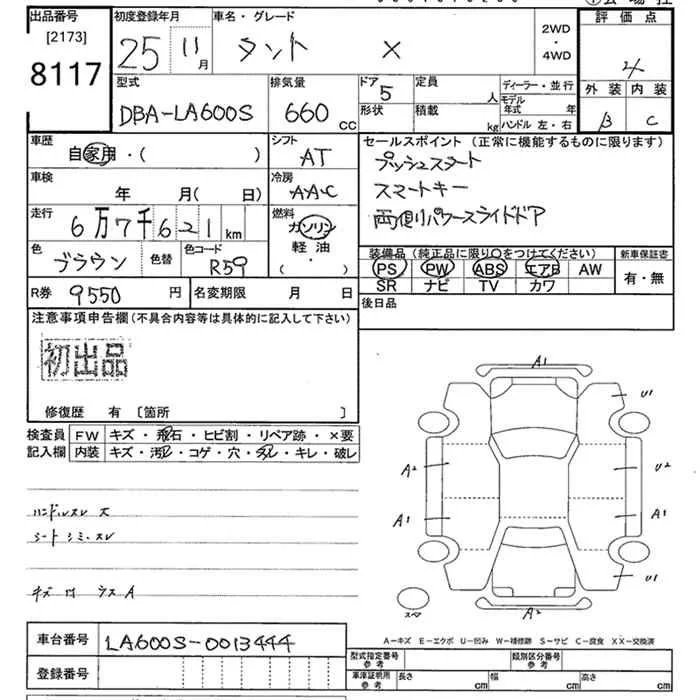 出品番号
[2173]
8117
初度登録年月
25 11月
車名・グレード
タント X
2WD
・
4WD
評価点
4
外装 内装
B C
型式
DBA-LA600S
排気量
660cc
ドア
5
形状
定員
人
積載
kg
ディーラー・並行
モデル年式 年
ハンドル 左・右
車歴
自家用・( )
シフト
AT
セールスポイント (正常に機能するものに限ります)
プッシュスタート
スマートキー
両側パワースライドドア
車検
年 月( 日)
冷房
AAC
走行
6万7千621km
燃料
ガソリン
軽油・
( ・ )
色
ブラウン
色替
色コード
R59
装備品(純正品に限り○をつけてください)
PS PW ABS エアB AW
SR ナビ TV カワ
新車保証書
有・無
R券 9550円
名変期限 月 日
後日品
注意事項申告欄(不具合内容等は具体的に記入して下さい)
初出品
修復歴 有 [箇所 ]
検査員 FW キズ・飛石・ヒビ割・リペア跡・×要
記入欄 内装 キズ・汚レ・コゲ・穴・スレ・キレ・破レ
ハンドルスレ 大
シート シミ・スレ
キズ 凹 ウス A
A1
U1
A2
U2
A1
A1
U1
A2
スペア
A-キズ E-エクボ U-凹み W-補修跡 S-サビ C-腐食 XX-交換済
車台番号 LA600S-0013444
登録番号
型式指定番号
参考
類別区分番号
参考
車庫証明用
参考
長さ cm
幅 cm
高さ cm